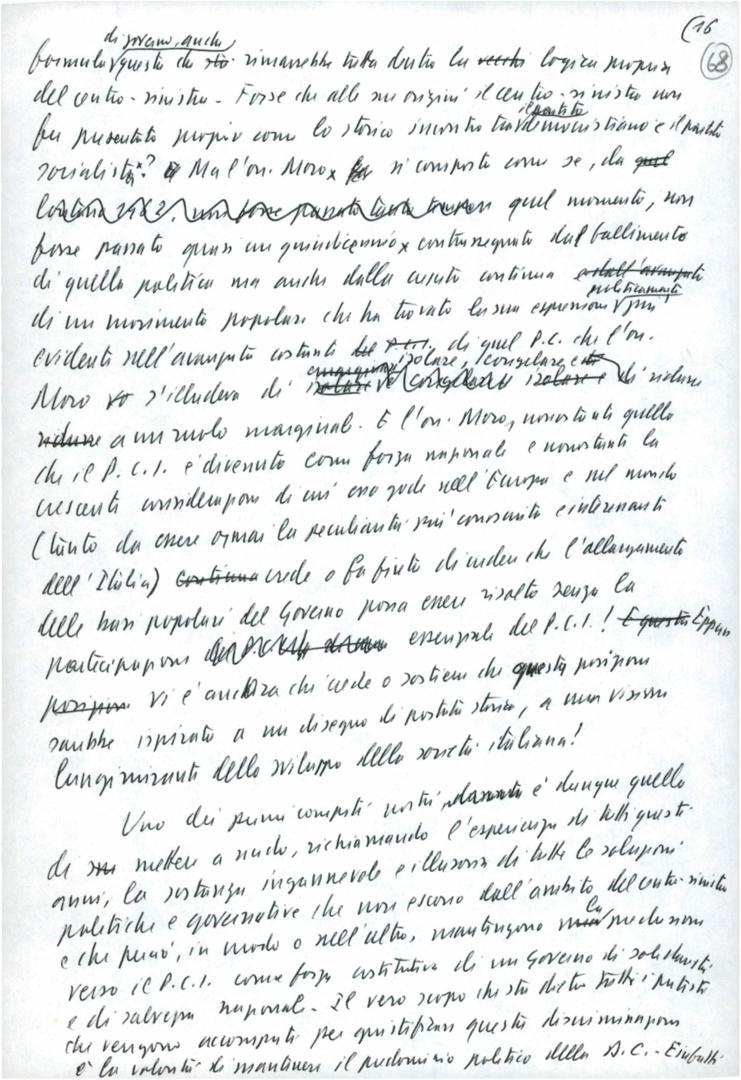 (16
68
di governo, anche
formula questa che sto rimarrebbe tutta dentro la vecchi logica propria
del centro-sinistra. Forse che alle sue origini il centro-sinistra non
il partito
fu presentato proprio come lo storico incontro tra democristiano e il partito
socialista? Ma l'on. Moro si comporta come se, da quel
lontano 1962, non fosse passato tanto tempo quel momento, non
fosse passato quasi un quindicennio contrassegnato dal fallimento
di quella politica ma anche dalla crescita continua e dall'avanzata
politicamente
di un movimento popolare che ha trovato la sua espressione più
evidente nell'avanzata costante del P.C.I., di quel P.C. che l'on.
isolare, congelare e
Moro s'illudeva di isolare congelare isolare e di ridurre
ridurre a un ruolo marginale. E l'on. Moro, nonostante quello
che il P.C.I. è divenuto come forza nazionale e nonostante la
crescente considerazione di cui esso gode nell'Europa e nel mondo
(tanto da essere ormai la peculiarità più conosciuta e interessante
dell'Italia) continua crede o fa finta di credere che l'allargamento
delle basi popolari del Governo possa essere risolto senza la
partecipazione essenziale del P.C.I.! E questa Eppure
posizione vi è anche chi crede o sostiene che questa posizione
sarebbe ispirata a un disegno di portata storica, a una visione
lungimirante dello sviluppo della società italiana!
Uno dei primi compiti nostri è dunque quello
di mettere a nudo, richiamando l'esperienza di tutti questi
anni, la sostanza ingannevole e illusoria di tutte le soluzioni
politiche e governative che non escono dall'ambito del centro-sinistra
la
e che perciò, in modo o nell'altro, mantengono preclusione
verso il P.C.I. come forza costitutiva di un Governo di solidarietà
e di salvezza nazionale. Il vero scopo che sta dietro tutti i pretesti
che vengono accampati per giustificare questa discriminazione
è la volontà di mantenere il predominio politico della D.C. -